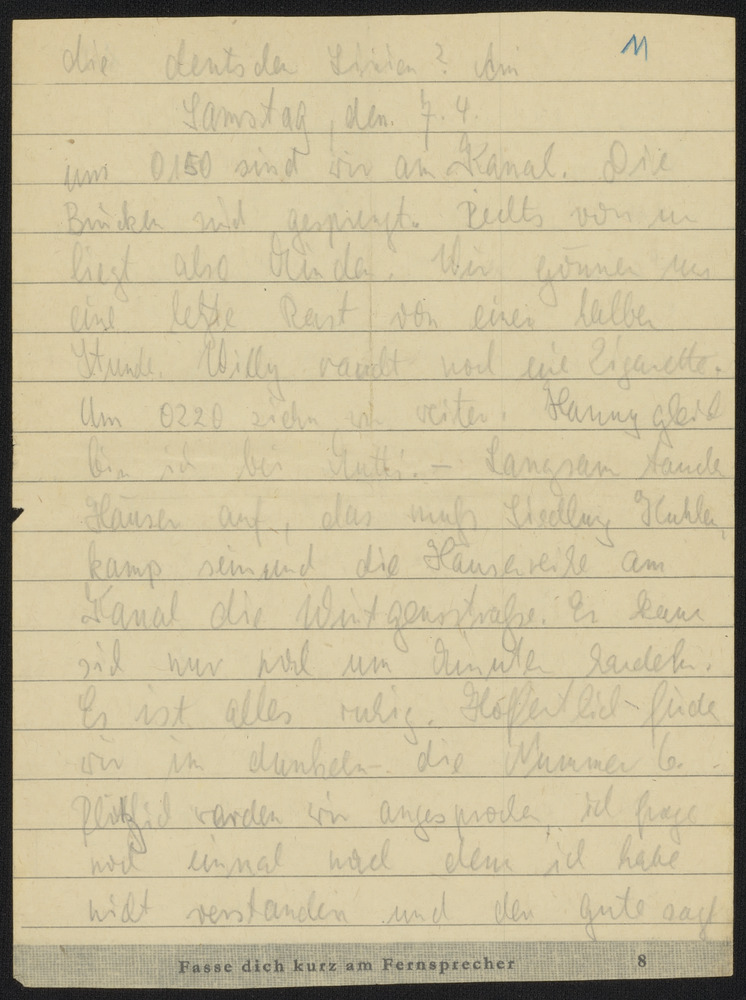 11
die deutschen Linien? Am
Samstag, den 7.4.
um 0150 sind wir am Kanal. Die
Brücken sind gesprengt. Rechts von un
liegt also Minden. Wir gönnen uns
eine letzte Rast von einer halben
Stunde. Willy raucht noch eine Zigarette.
Um 0220 ziehn wir weiter. Hanny gleich
bin ich bei Mutti. – Langsam tauchen
Häuser auf, das muß Siedlung Kuhlen
kamp sein und die Häuserreihe am
Kanal die Wintgensstraße. Es kann
sich nur noch um Minuten handeln.
Es ist alles ruhig. Hoffentlich finde
wir im dunkeln die Nummer 6.
Plötzlich werden wir angesprochen, ich frage
noch einmal nach denn ich habe
nicht verstanden und der gute sagt
Fasse dich kurz am Fernsprecher 8